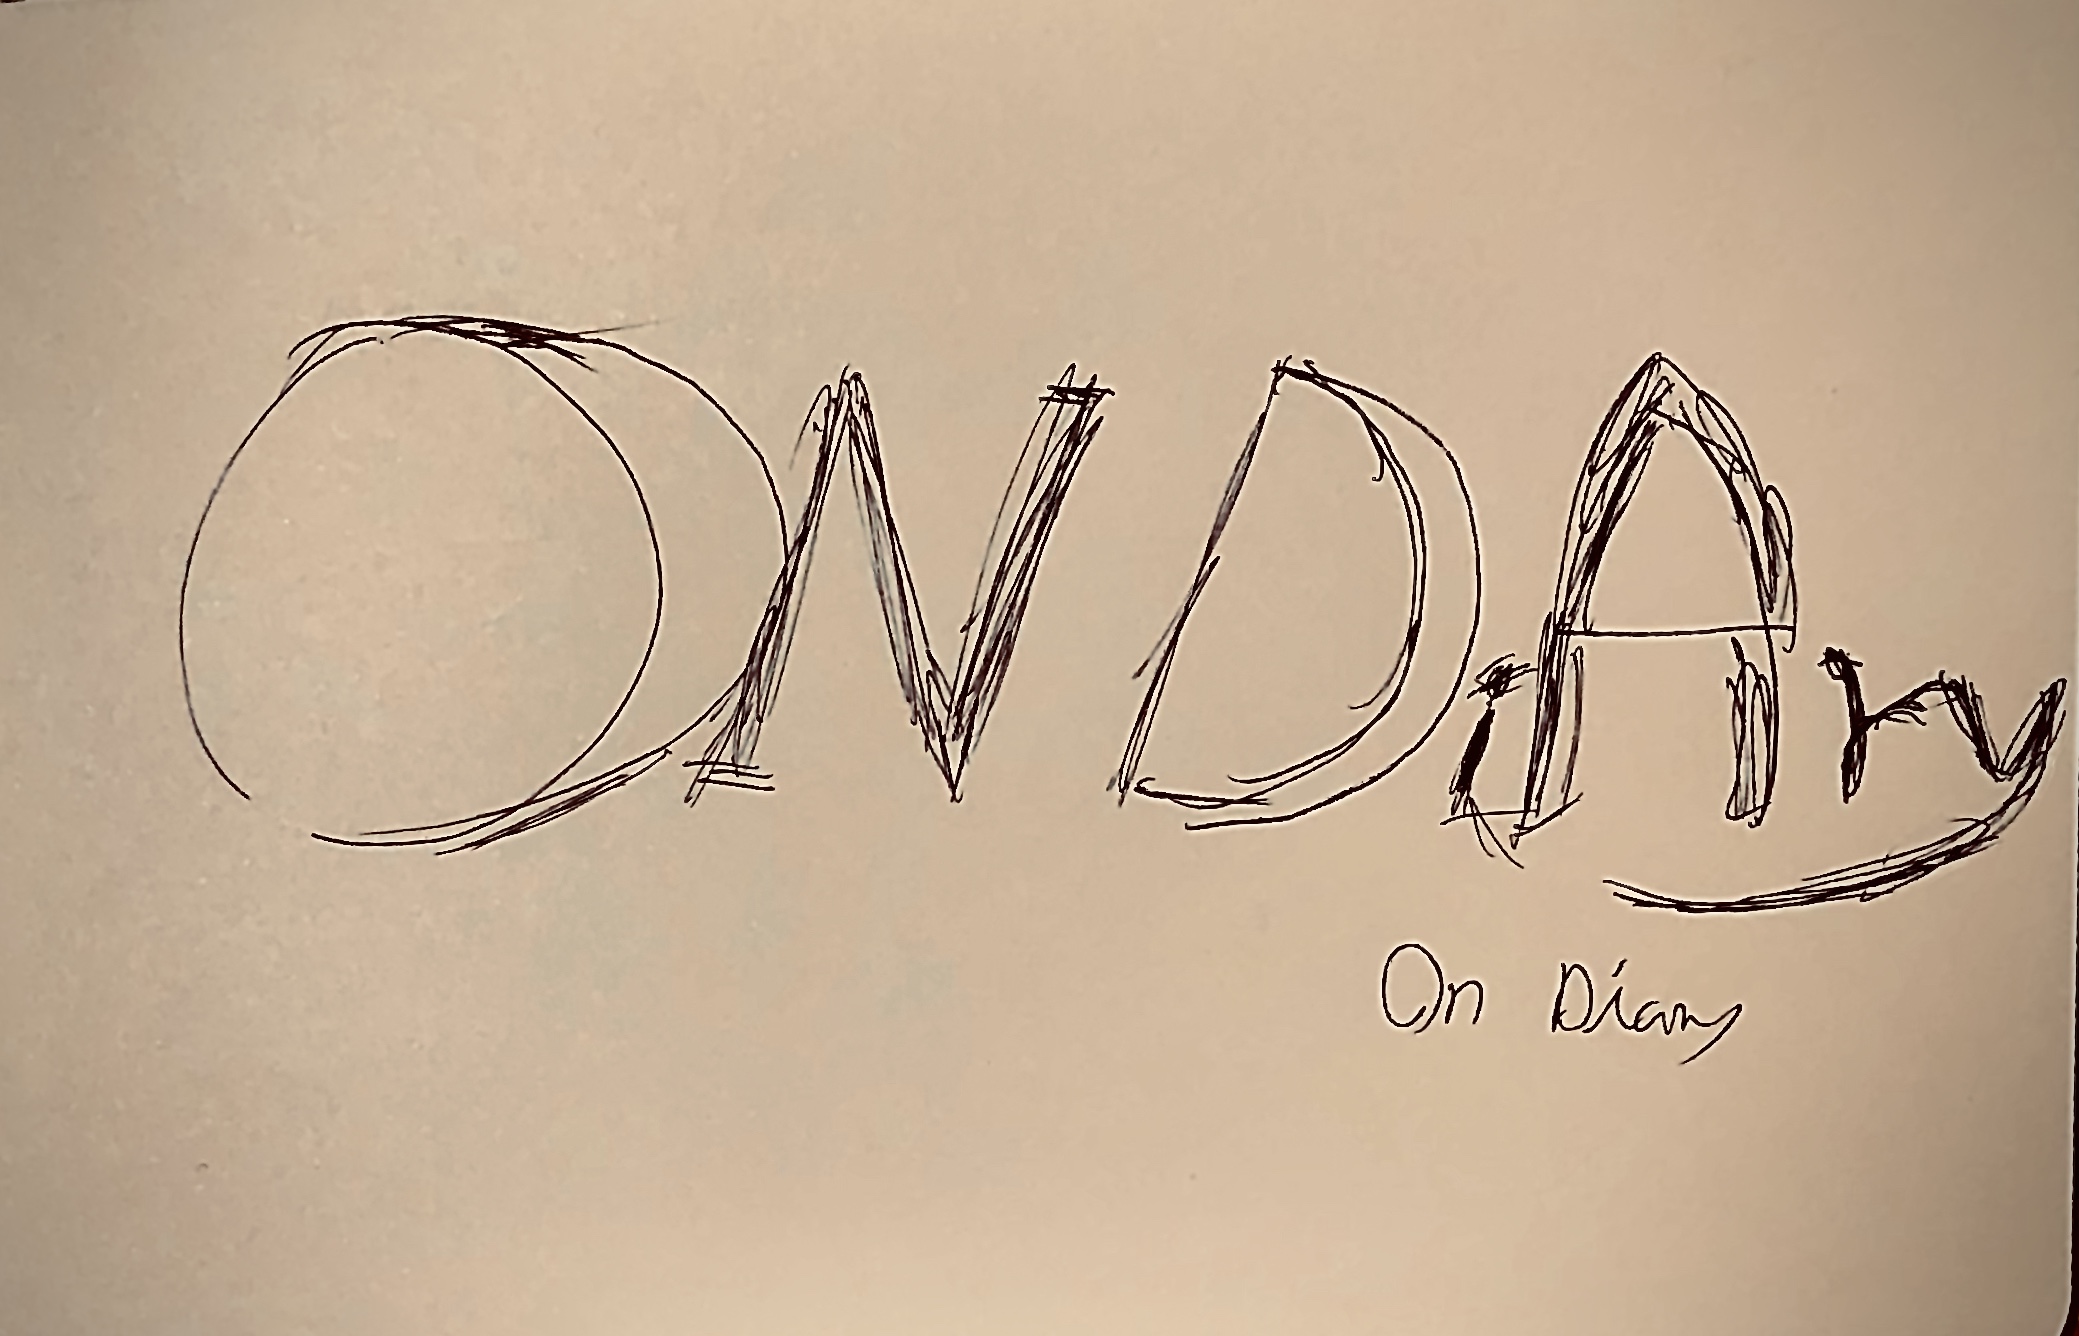 ONDiAry
On Diary